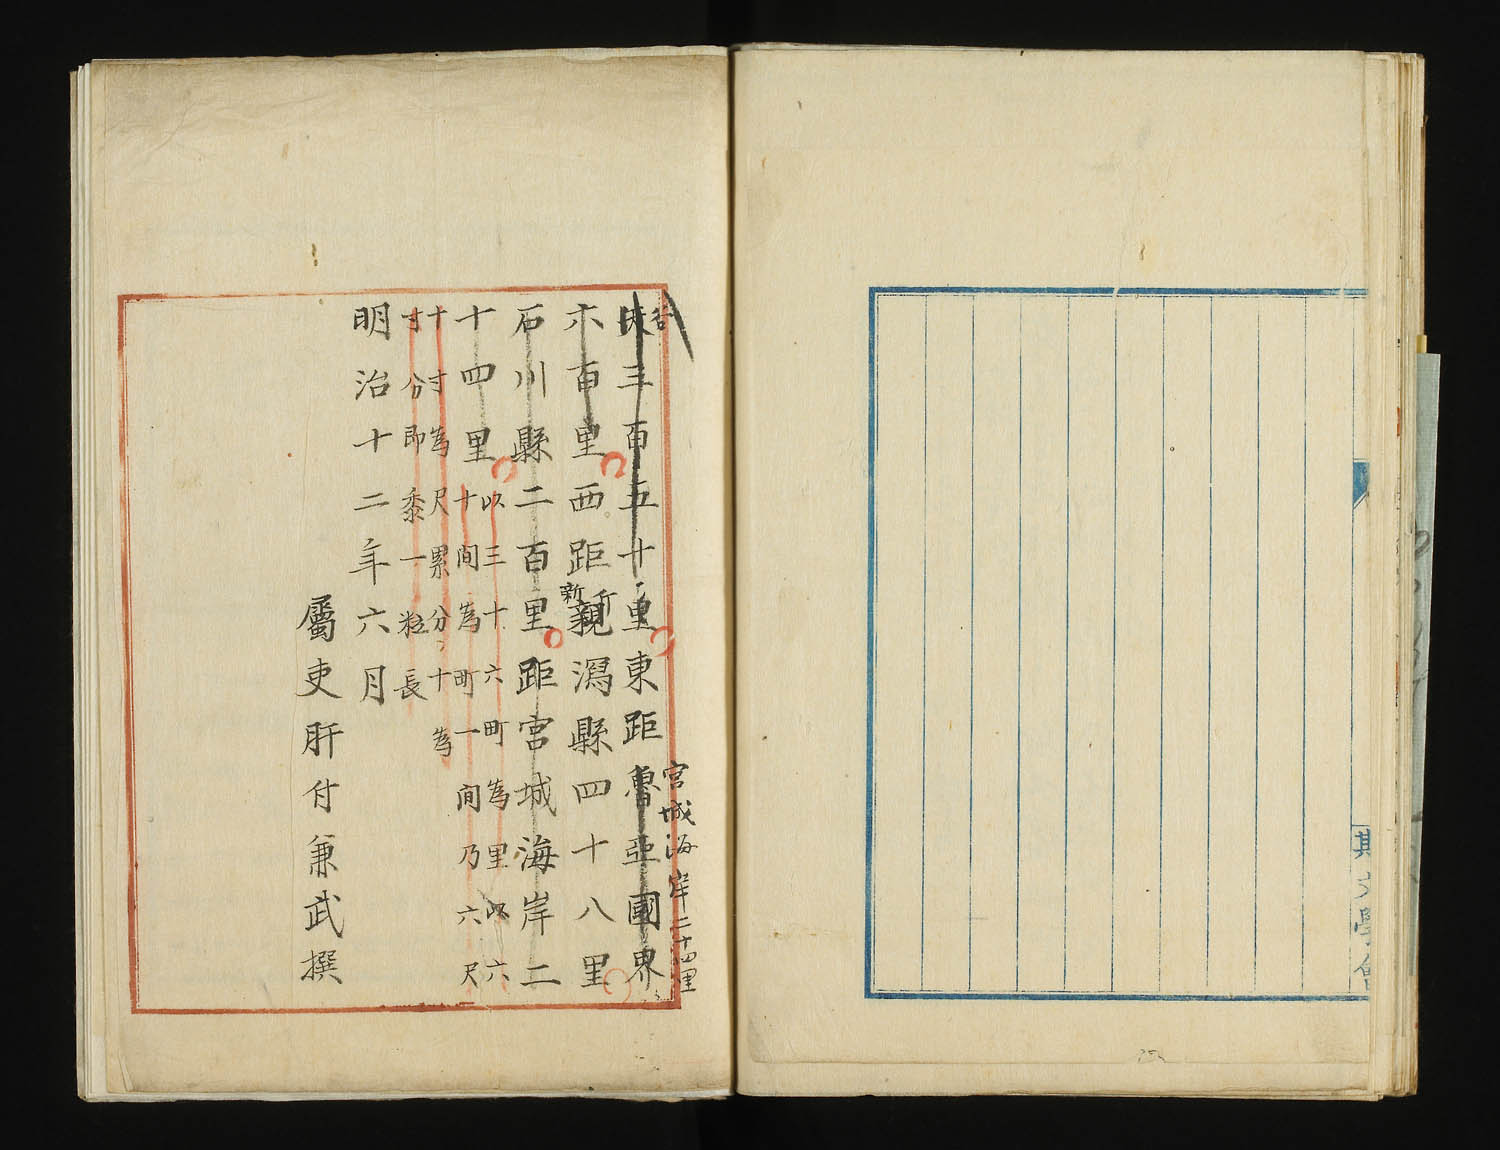 其文學會
宮城海岸二十四里
三百五十里東距魯亞國界
六百里西距新潟縣四十八里
石川縣二百里距宮城海岸二
十四里以三十六町為里以六
十間為町一間乃六尺
十寸為尺累分十為
寸分即黍一粒長
明治十二年六月
屬吏肝付兼武撰